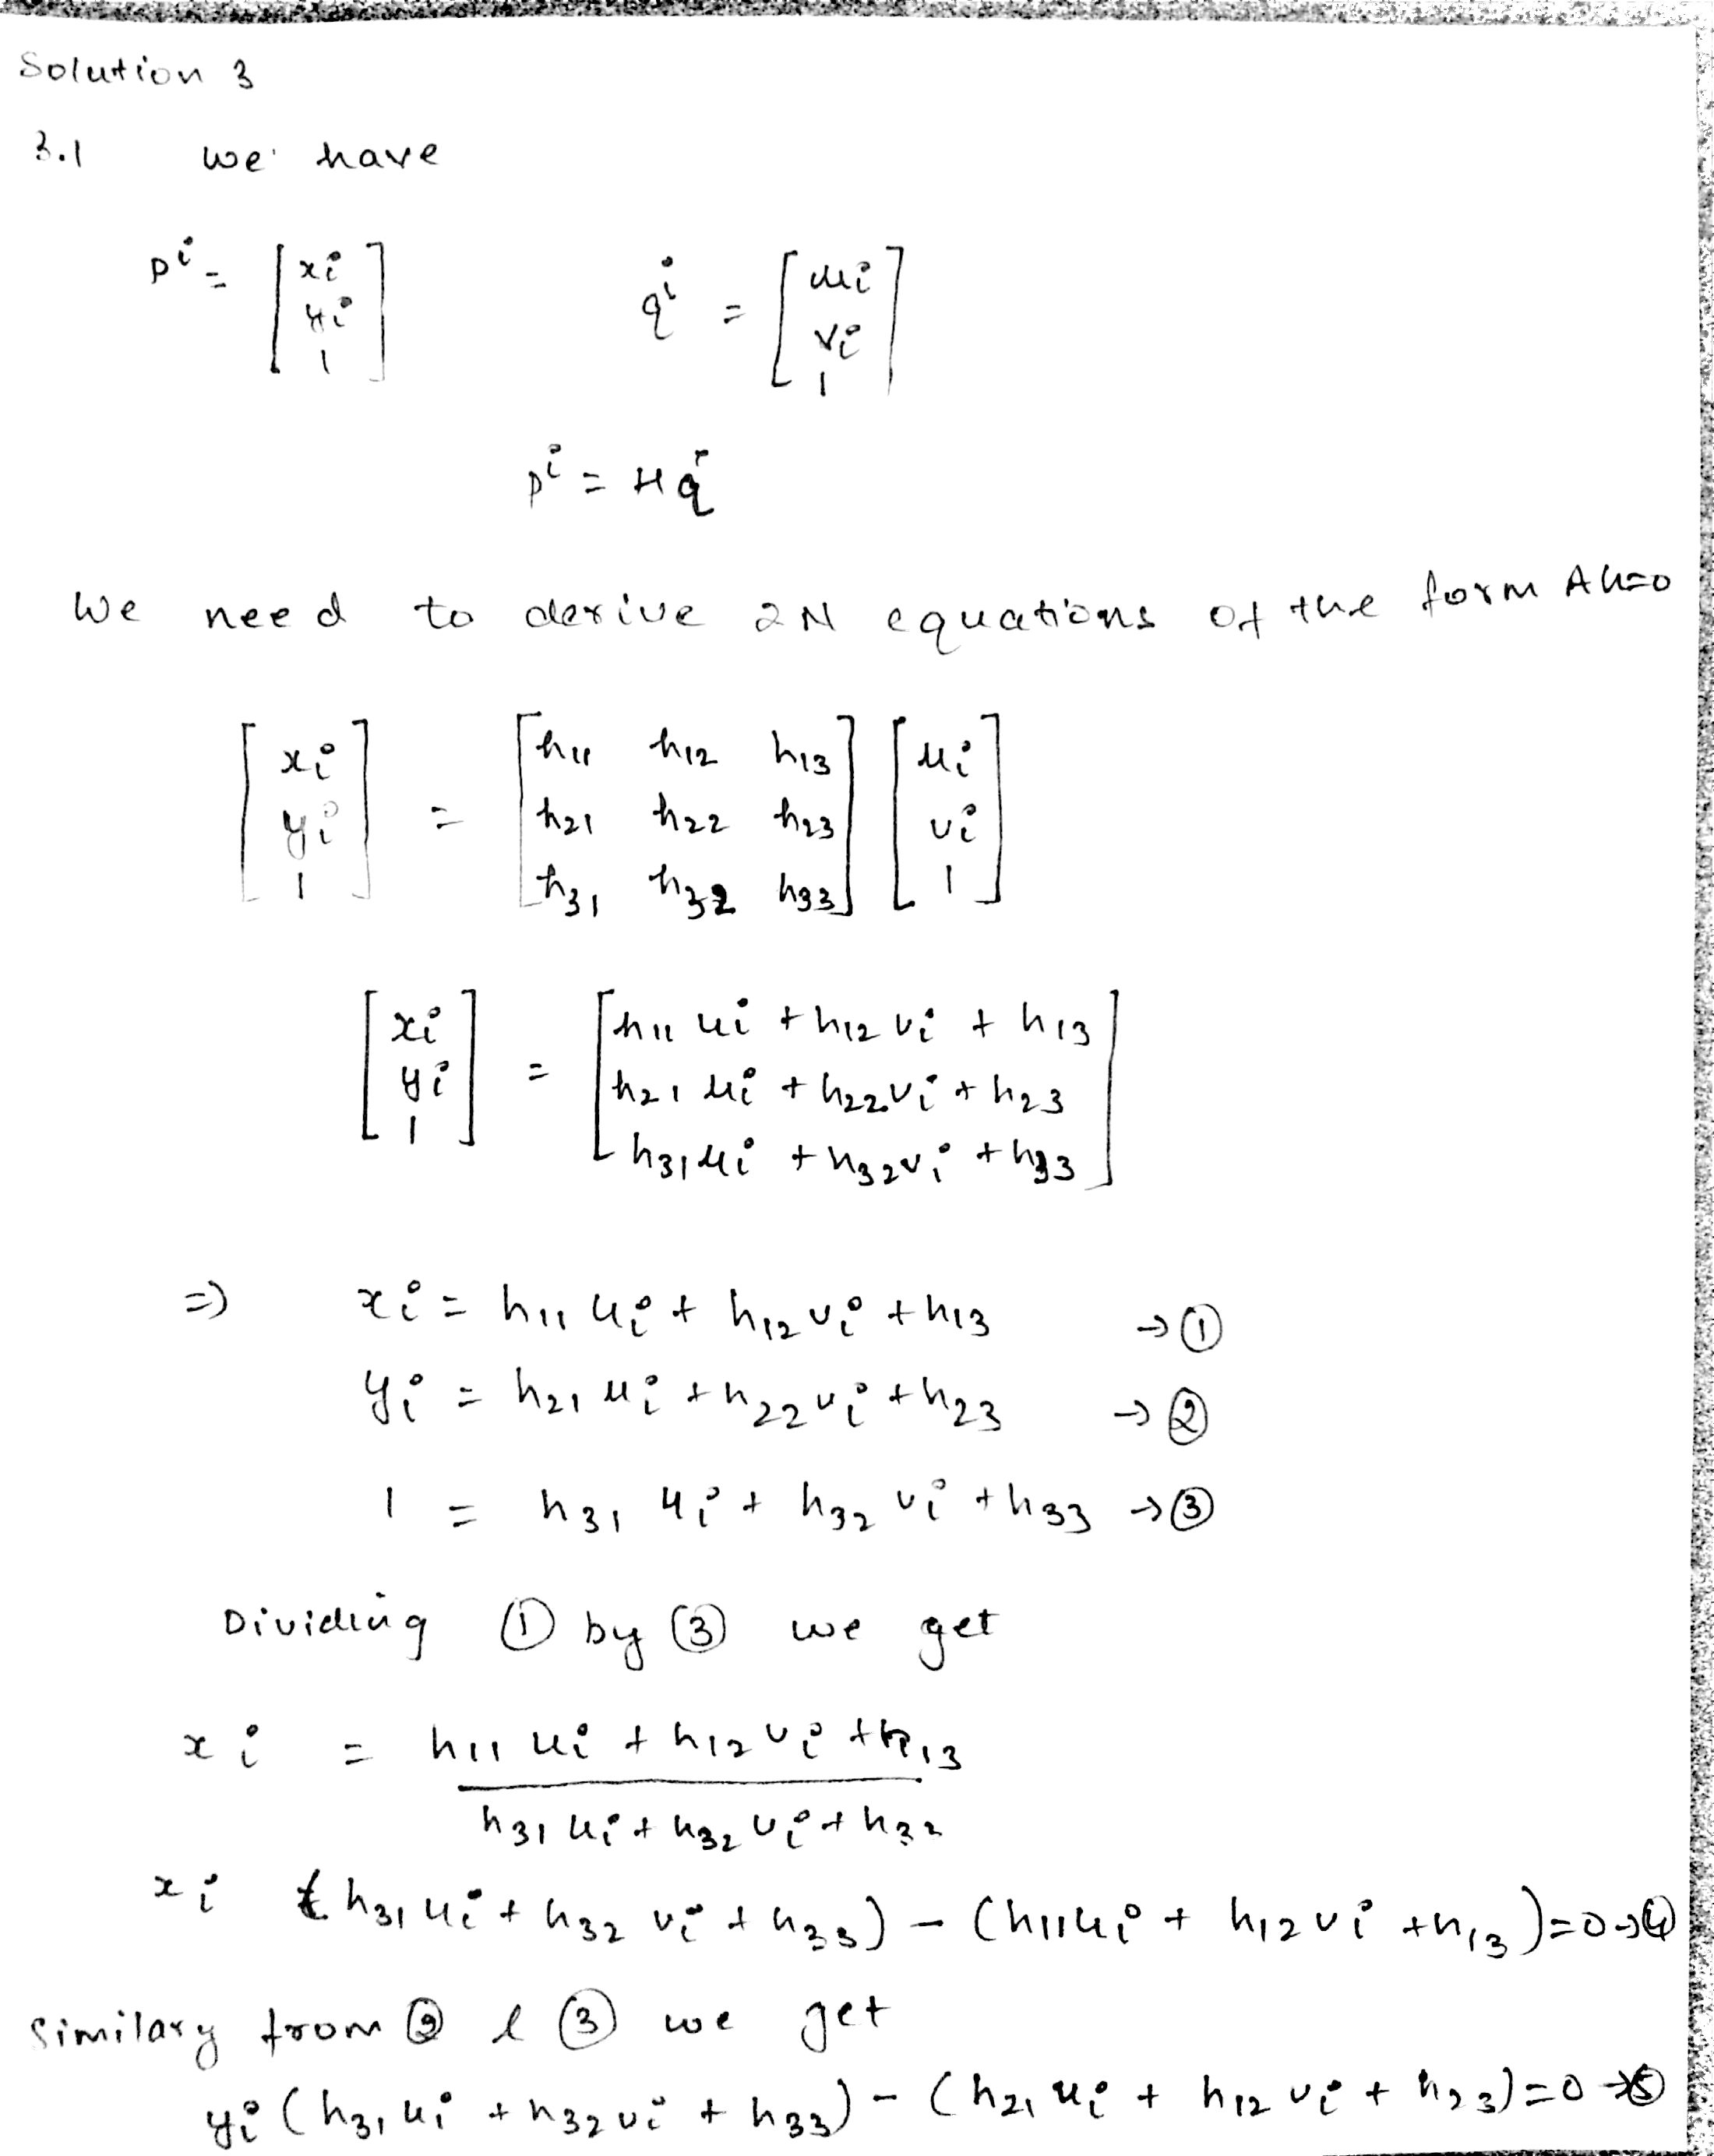 Solution 3
3.1 we have
pⁱ = [xi yi 1] qⁱ = [ui vi 1]
pⁱ = Hqⁱ
We need to derive 2N equations of the form Ah=0
[xi yi 1] = [h11 h12 h13 h21 h22 h23 h31 h32 h33] [ui vi 1]
[xi yi 1] = [h11 ui + h12 vi + h13
h21 ui + h22 vi + h23
h31 ui + h32 vi + h33]
=) xi = h11 ui + h12 vi + h13 → ①
yi = h21 ui + h22 vi + h23 → ②
1 = h31 ui + h32 vi + h33 → ③
Dividing ① by ③ we get
xi = h11 ui + h12 vi + h13
h31 ui + h32 vi + h32
xi (h31 ui + h32 vi + h33) - (h11 ui + h12 vi + h13) = 0 → ④
Similary from ② & ③ we get
yi (h31 ui + h32 vi + h33) - (h21 ui + h12 vi + h23) = 0 → ⑤